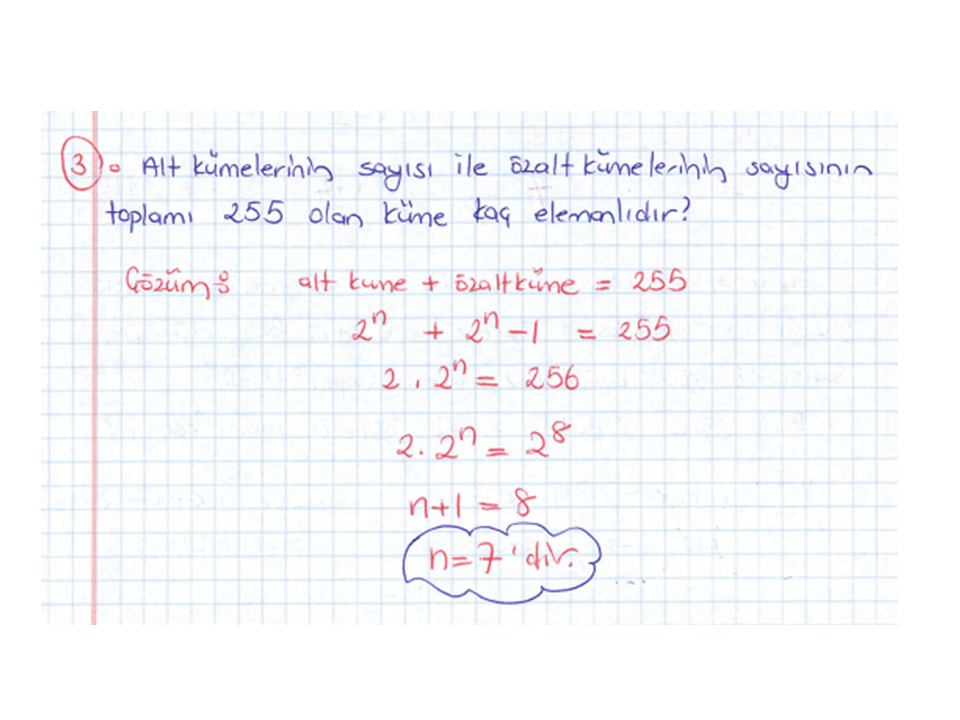 3. Alt kümelerinin sayısı ile özalt kümelerinin sayısının
toplamı 255 olan küme kaç elemanlıdır?
Çözüm: alt kume + özaltküme = 255
2ⁿ + 2ⁿ - 1 = 255
2 . 2ⁿ = 256
2 . 2ⁿ = 2⁸
n+1 = 8
n = 7'dir.